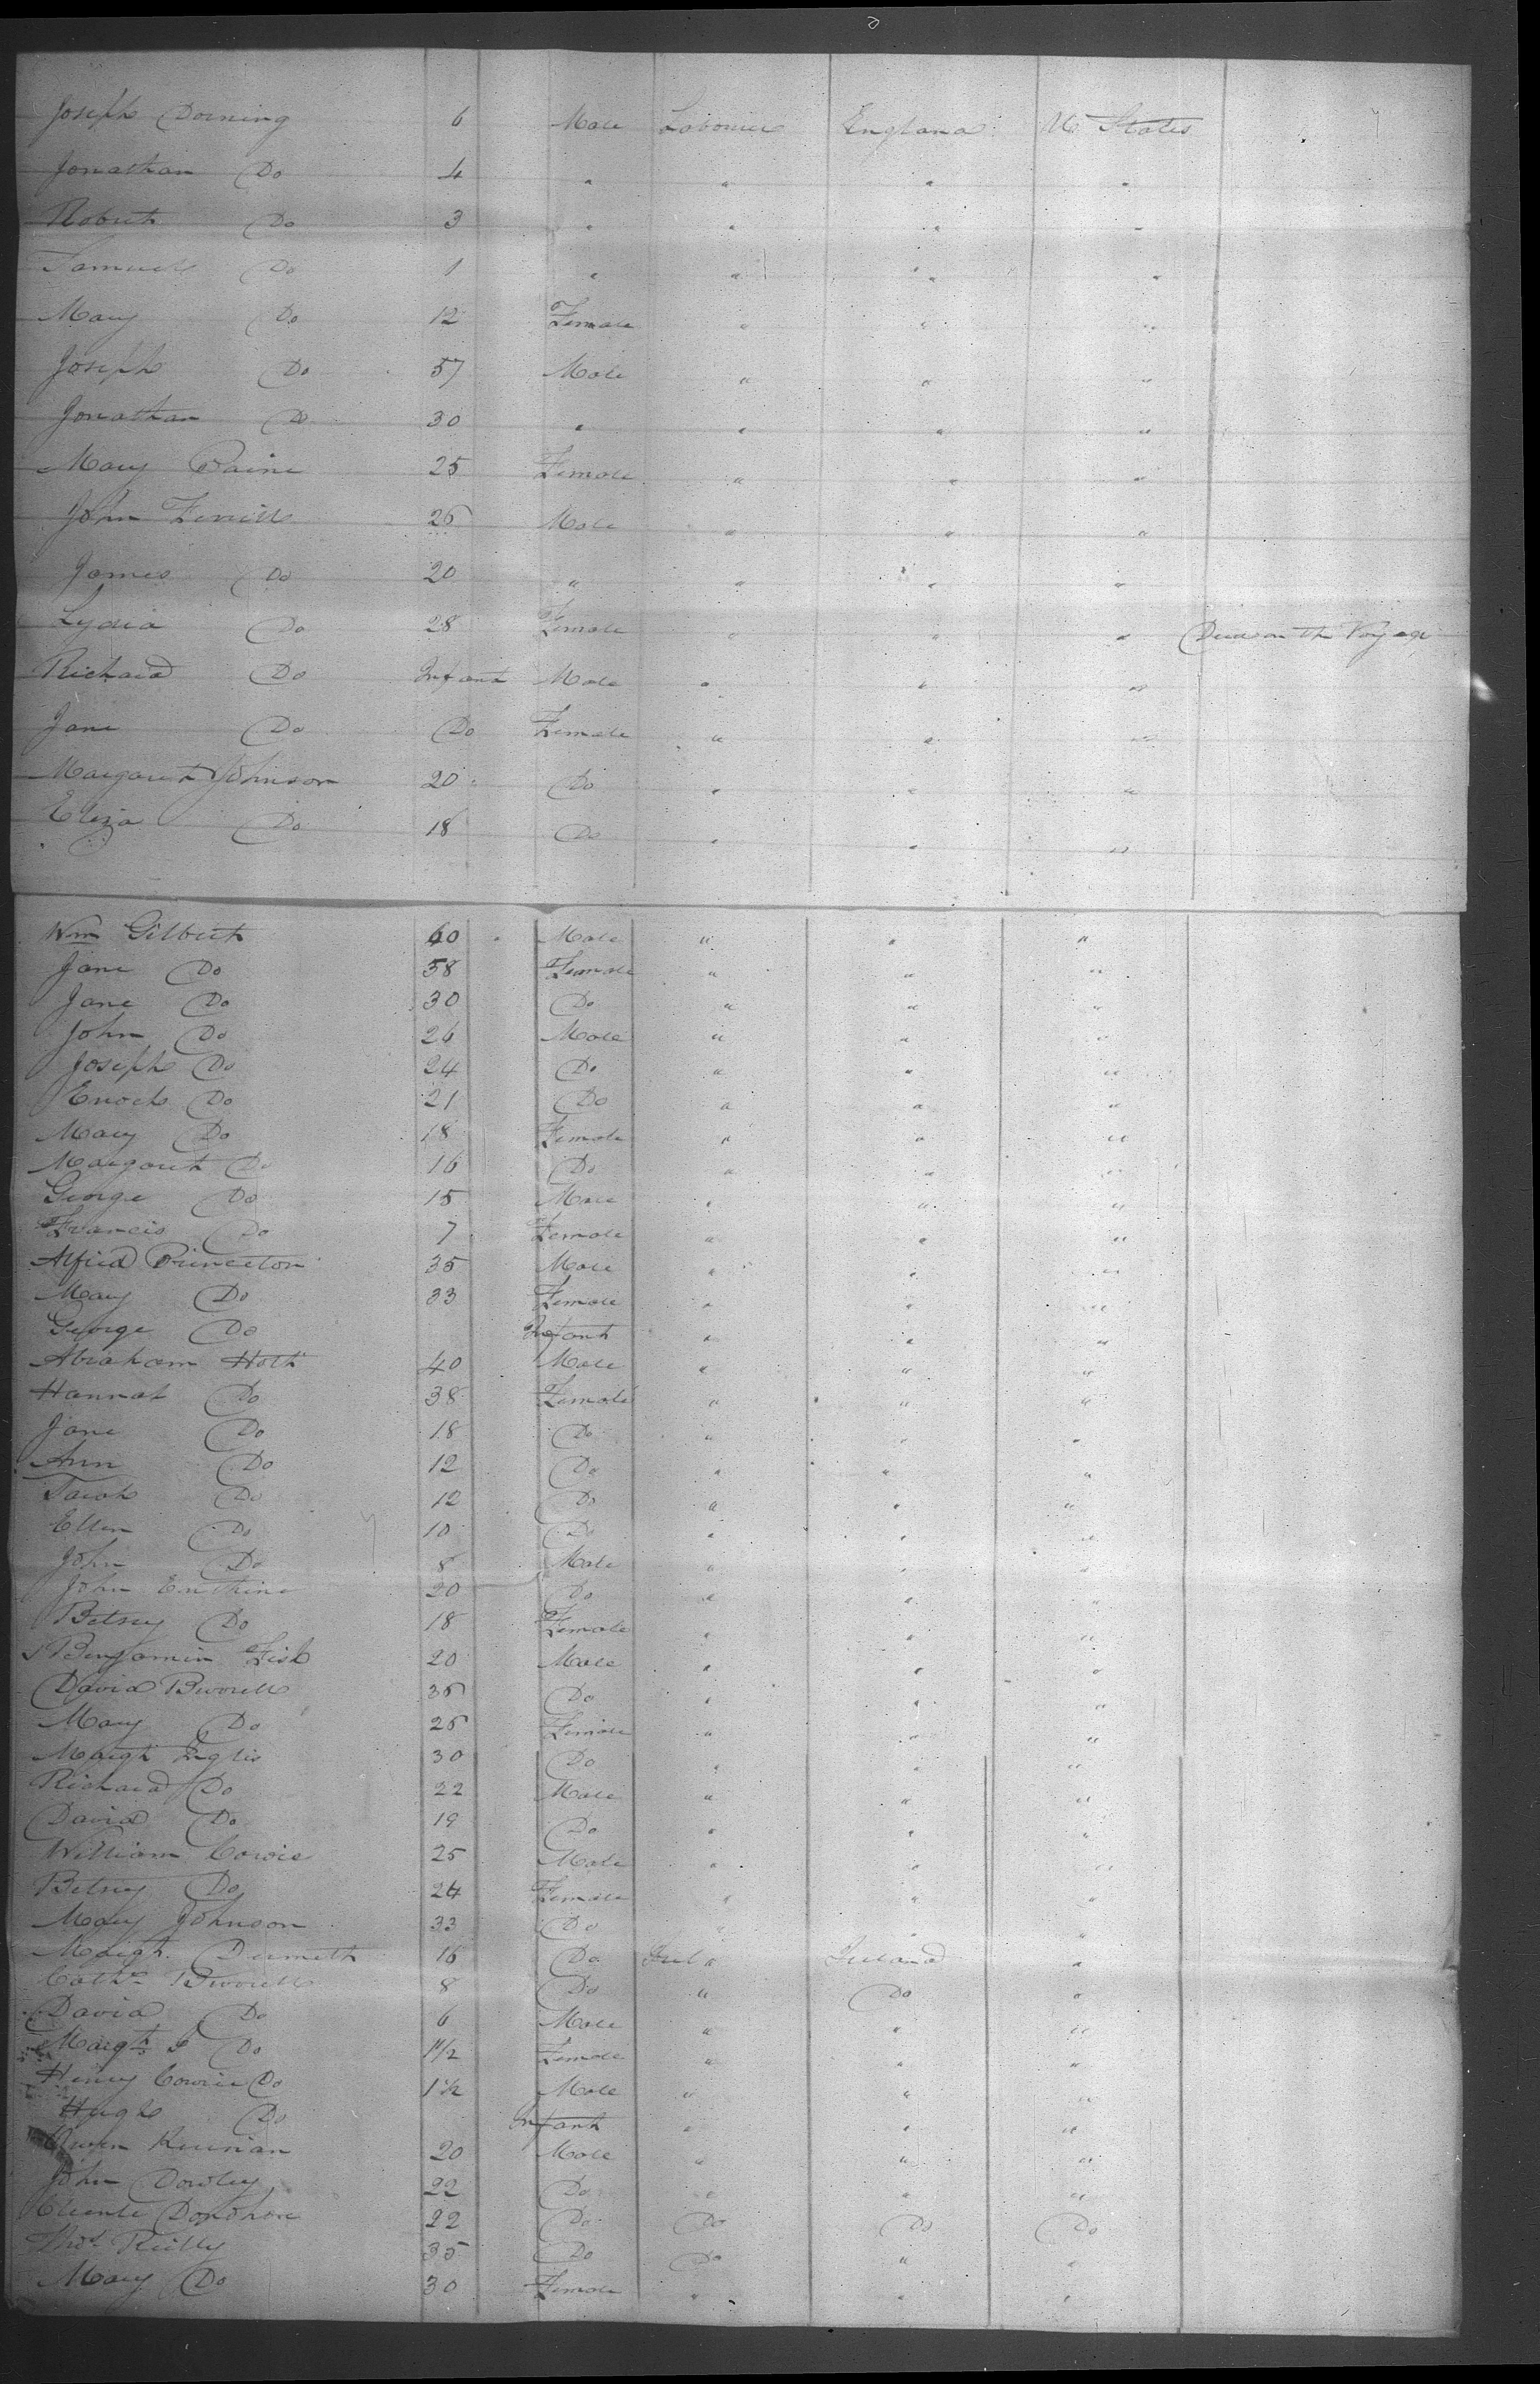 Joseph Dorning 6 Male Labourer England U States
Jonathan Do 4 " " " "
Robert Do 3 " " " "
Samuel Do 1 " " " "
Mary Do 12 Female " " "
Joseph Do 57 Male " " "
Jonathan Do 30 " " " "
Mary Paine 25 Female " " "
John 26 Male " " "
James Do 20 " " " "
Lydia Do 28 Female " " " Died on the Voyage
Richard Do Infant Male " " "
Jane Do Do Female " " "
Margaret Johnson 20 Do " " "
Eliza Do 18 Do " " "
Wm Gilbert 60 Male " " "
Jane Do 58 Female " " "
Jane Do 30 Do " " "
John Do 26 Male " " "
Joseph Do 24 Do " " "
Enoch Do 21 Do " " "
Mary Do 18 Female " " "
Margaret Do 16 Do " " "
George Do 15 Male " " "
Francis Do 7 Female " " "
Alfred Princeton 35 Male " " "
Mary Do 33 Female " " "
George Do Infant " " "
Abraham Holt 40 Male " " "
Hannah Do 38 Female " " "
Jane Do 18 Do " " "
Ann Do 12 Do " " "
Sarah Do 12 Do " " "
Ellen Do 10 Do " " "
John Do 8 Male " " "
John 20 Do " " "
Betsey Do 18 Female " " "
Benjamin Fish 20 Male " " "
David 35 Do " " "
Mary Do 26 Female " " "
Margt Inglis 30 Do " " "
Richard Do 22 Male " " "
David Do 19 Do " " "
William Cowie 25 Male " " "
Betsey Do 24 Female " " "
Mary Johnson 33 Do " " "
Margt. 16 Do " Ireland "
Cathe 8 Do " Do "
David Do 6 Male " " "
Margt Do 1 1/2 Female " " "
Henry Cowie Do 1 1/2 Male " " "
Hugh Do Infant " " "
Owen 20 Male " " "
John Dowley 22 Do " " "
Donohoe 22 Do Do Do Do
Thos Reilly 35 Do Do " "
Mary Do 30 Female " " "